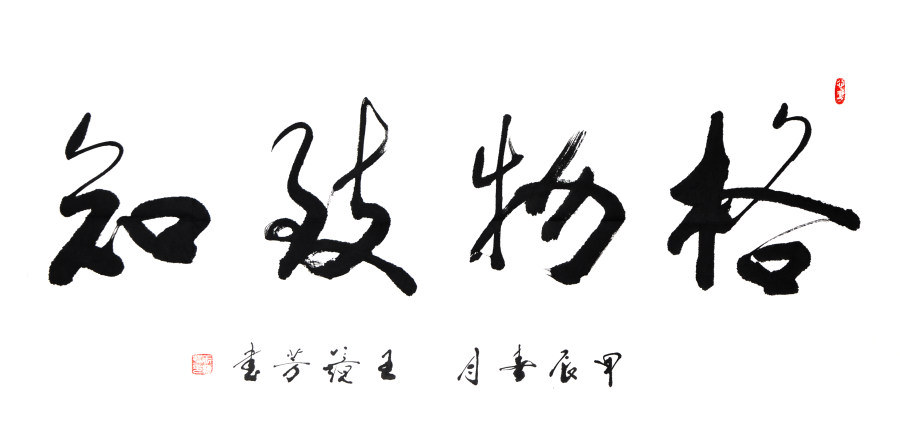 格物致知
甲辰春月 王芳书